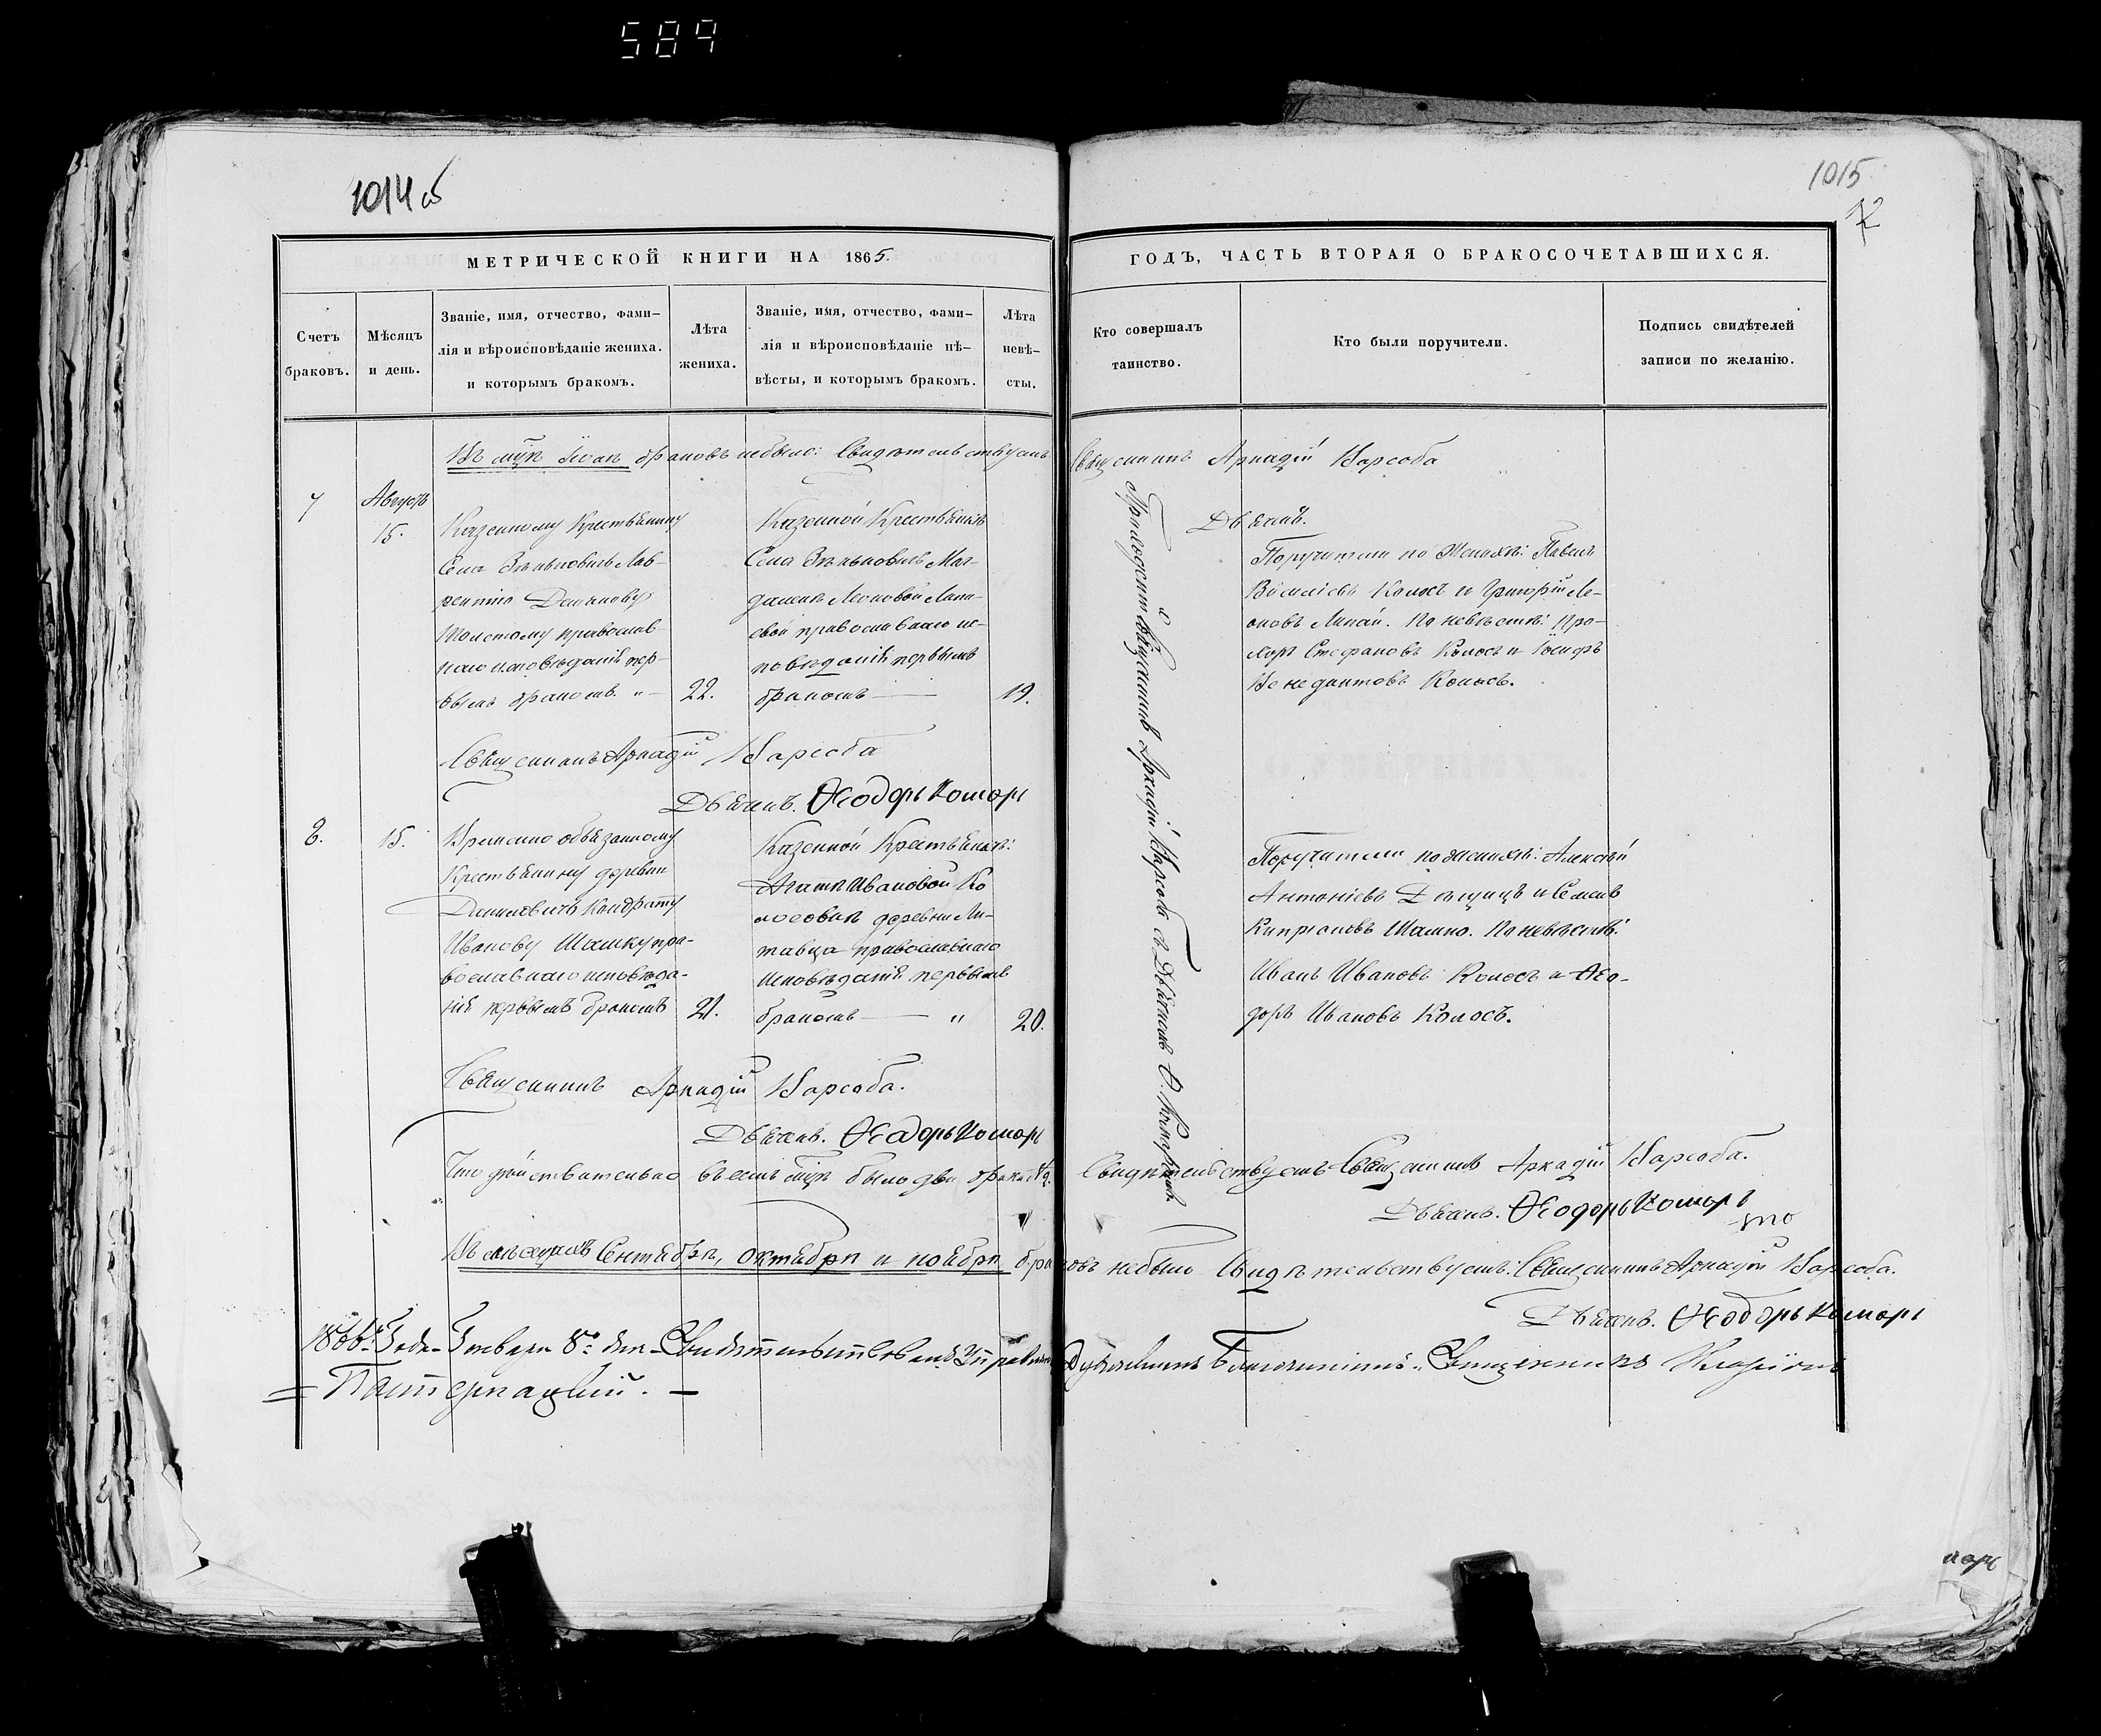 589
1014 об
1015
МЕТРИЧЕСКОЙ КНИГИ НА 1865.
ГОДЪ, ЧАСТЬ ВТОРАЯ О БРАКОСОЧЕТАВШИХСЯ.
Счетъ
браковъ.
Мѣсяцъ
и день.
Званіе, имя, отчество, фами-
лія и вѣроисповѣданіе жениха.
и которымъ бракомъ.
Лѣта
жениха.
Званіе, имя, отчество, фами-
лія и вѣроисповѣданіе нѣ-
вѣсты, и которымъ бракомъ.
Лѣта
невѣ-
сты.
Кто совершалъ
таинство.
Кто были поручители.
Подпись свидѣтелей
записи по желанію.
браковъ небыло: Свидѣтельствуемъ Священникъ Аркадій Варсоба
Дьячекъ.
7
Августъ
15.
Казенному Крестьянину
Села Лав-
рентію
православ-
наго исповѣданія пер-
вымъ бракомъ. „ —
22.
Казенной Крестьянкѣ
Села Маг-
даленѣ Леоновой Липи-
свой православнаго ис-
повѣданія первымъ
бракомъ —
19.
Поручители по Женихѣ: Павелъ
Колосъ и Григорій Ле-
оновъ Липай. По невѣстѣ: Про-
хоръ Стефановъ Колосъ и Іосифъ
Бенедиктовъ Колосъ.
Приходскій Священникъ Аркадій Варсоба съ Дьячкомъ Ѳ. Комаромъ.
Священникъ Аркадій Варсоба
Дьячекъ. Ѳеодоръ Комаръ
8.
15.
Временно обязанному
Крестьянину деревни
Даниловичъ Кондрату
Иванову Шашку пра-
вославнаго исповѣда-
нія первымъ бракомъ
21.
Казенной Крестьянкѣ:
Агатѣ Ивановой Ко
лосовнѣ деревни Ли-
тавца православнаго
исповѣданія первымъ
бракомъ — „
20.
Поручители по женихѣ: Алексѣй
Антоніевъ и Семенъ
Кипріановъ Шашко. По невѣстѣ:
Иванъ Ивановъ Колосъ и Ѳео-
доръ Ивановъ Колосъ.
Священникъ Аркадій Варсоба.
Дьячекъ. Ѳеодоръ Комаръ
Что дѣйствительно въ семъ было два брака Свидѣтельствуемъ Священникъ Аркадій Варсоба.
Дьячекъ. Ѳеодоръ Комаръ
что
Въ мѣсяцахъ Сентябрѣ, октябрѣ и ноябрѣ браковъ небыло Свидѣтельствуемъ: Священникъ Аркадій Варсоба.
Дьячекъ. Ѳеодоръ Комаръ
1866 Года Января 8 дня Благочинный Священникъ
маръ